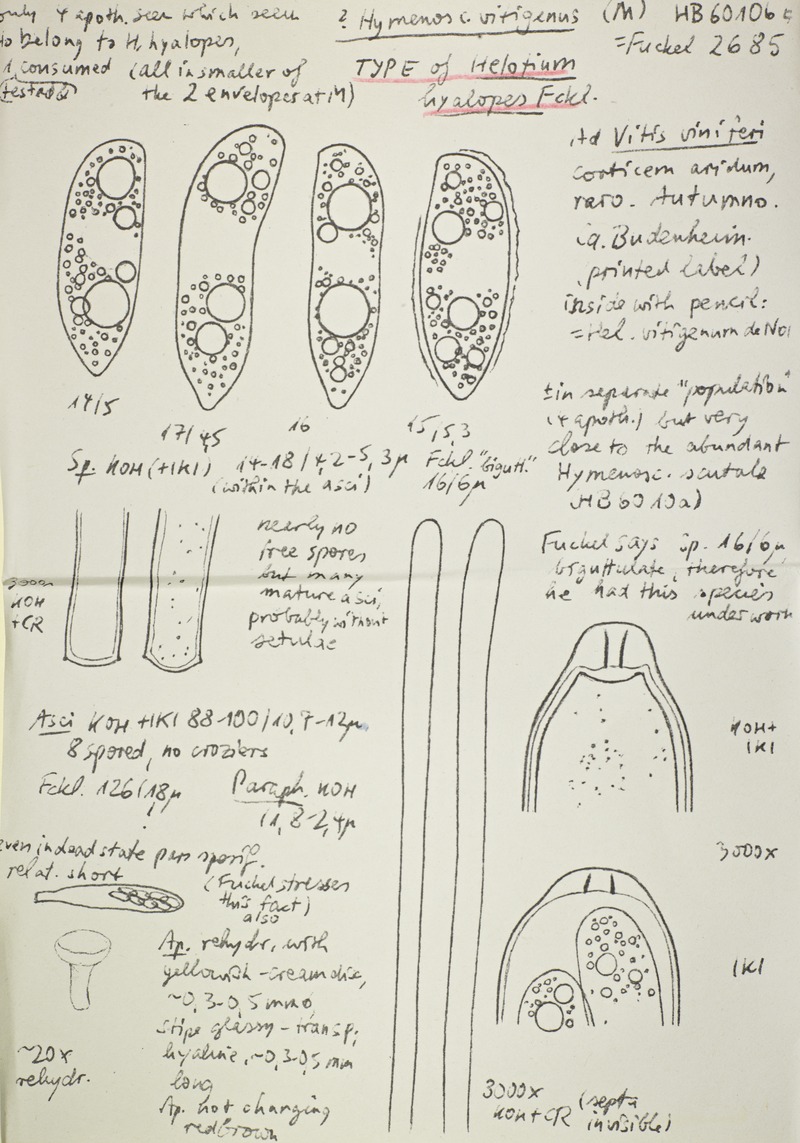 only 4 apoth. seen which seem
to belong to H. hyalopes,
1 consumed (all in smaller of
tested the 2 envelopes at M)
? Hymenosc. vitigenus (M) HB 6010b
=Fuckel 2685
TYPE of Helotium
hyalopes Fckl.
Ad Vitis viniferi
corticem aridum,
raro. Autumno.
Budenheim.
printed label)
inside with pencil:
=Hel. vitigenum de Not
± in separate "population"
(4 apoth.) but very
close to the abundant
Hymenosc. scutula
HB 6010a)
14/5
17/4,5
16
15/5,3
Sp. KOH (+IKI) 14-18/4,2-5,3µ Fckl. "bigutt."
(within the asci) 16/6µ
Fuckel says Sp. 16/6µ
biguttulate, therefore
he had this species
under
3000x
KOH
+CR
nearly no
free spores
but many
mature asci,
probably without
setulae
Asci KOH+IKI 88-100/10,7-12µ
8 spored, no croziers
Fckl. 126/18µ
!
Paraph. KOH
1,8-2,4µ
KOH+
IKI
3000x
even in dead state pars sporif.
relat. short
(Fuckel stresses
this fact)
also
Ap. rehydr. with
yellowish-cream disc,
~0,3-0,5 mm ø,
stipe glassy-transp.,
hyaline, ~0,3-0,5 mm
long
Ap. not changing
redbrown
~20x
rehydr.
IKI
3000x
KOH+CR
(septa
invisible)